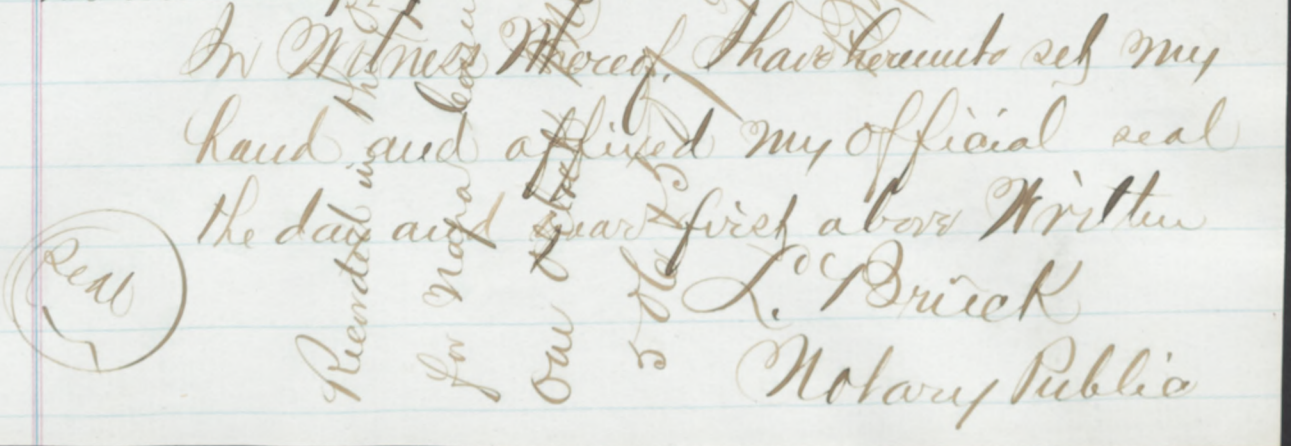 In Witness Whereof, I have hereunto set my
hand and affixed my official seal
the day and year first above Written
seal
L. Brück
Notary Public
Recorded in the
for Napa Coun
One
5 Oc